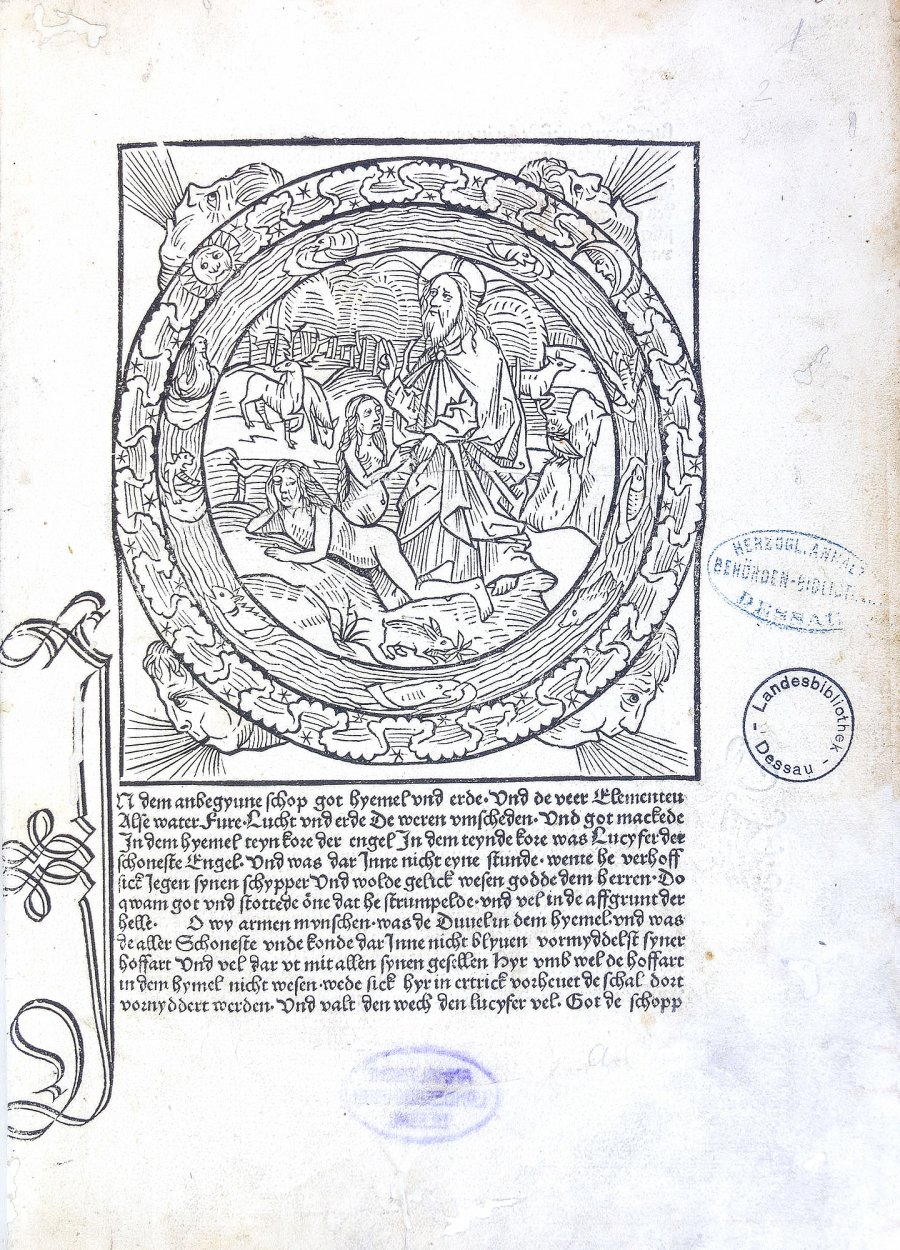 N dem anbegynne schop got hyemel vnd erde· Vnd de veer Elementen
Alse water Fure· Lucht vnd erde De weren vmscheden· Vnd got mackede
In dem hyemel teyn kore der engel In dem teynde kore was Lucyfer der
schoneste Engel· Vnd was dar Inne nicht eyne stunde· wente he verhoff
sick Jegen synen schypper Vnd wolde gelick wesen godde dem herren· Do
qwam got vnd stottede õne dat he strumpelde· vnd vel in de affgrunt der
helle· O wy armen mynschen· was de Duuel in dem hyemel· vnd was
de aller Schoneste vnde konde dar Inne nicht blyuen vormyddelst syner
hoffart Vnd vel dar vt mit allen synen gesellen Hyr vmb wel de hoffart
in dem hymel nicht wesen· wede sick hyr in ertrick vorheuet de schal dort
vornyddert werden· Vnd valt den wech den lucyfer vel· Got de schopp
HERZOGL. ANHALT
BEHÖRDEN-BIBLIOTHEK
DESSAU
Landesbibliothek
- Dessau -
1
2